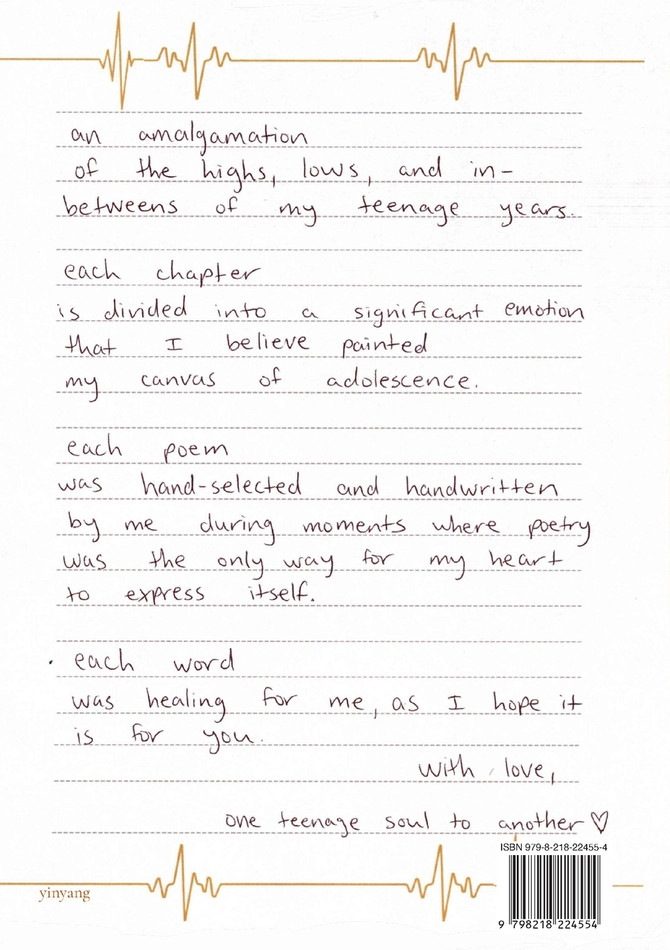 an amalgamation
of the highs, lows, and in-
betweens of my teenage years.
each chapter
is divided into a significant emotion
that I believe painted
my canvas of adolescence.
each poem
was hand-selected and handwritten
by me during moments where poetry
was the only way for my heart
to express itself.
each word
was healing for me, as I hope it
is for you.
with love,
one teenage soul to another ♡
ISBN 979-8-218-22455-4
yinyang
9 798218 224554